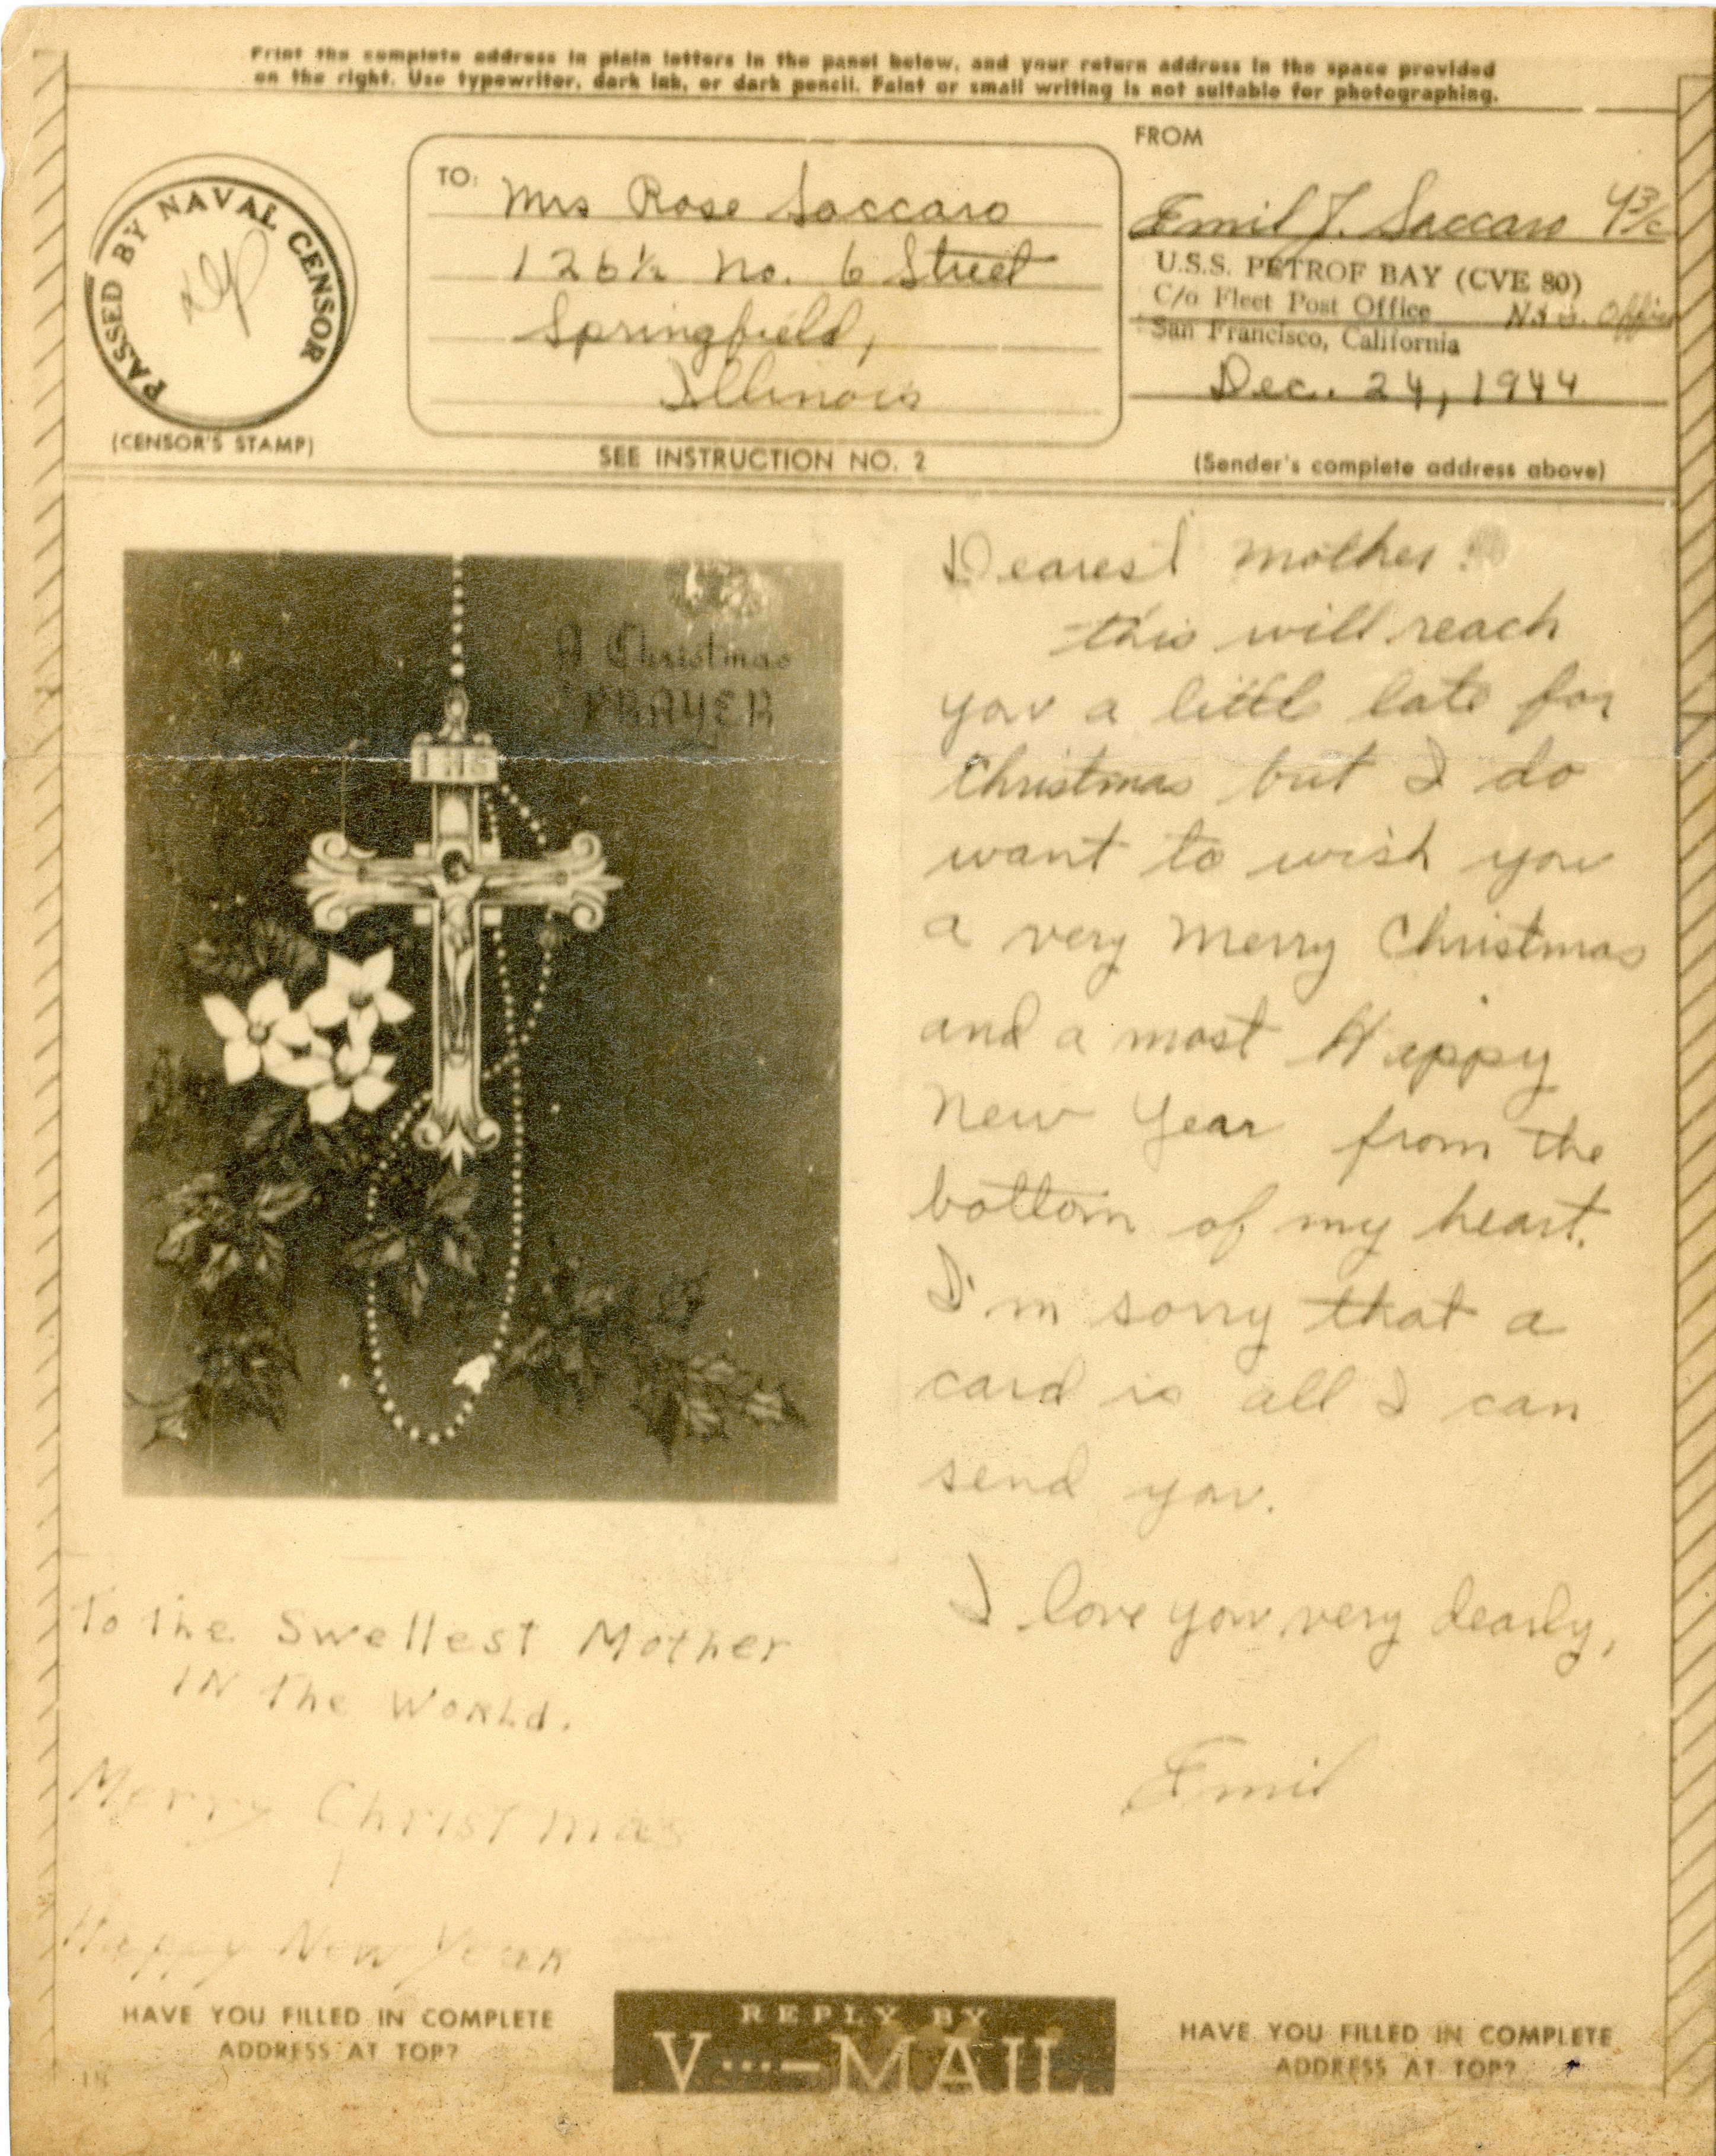 Print the complete address in plain letters in the panel below, and your return address in the space provided
on the right. Use typewriter, dark ink, or dark pencil. Faint or small writing is not suitable for photographing.
PASSED BY NAVAL CENSOR
(CENSOR'S STAMP)
TO:
Mrs Rose Saccaro
126½ No. 6 Street
Springfield,
Illinois
SEE INSTRUCTION NO. 2
FROM
Emil J. Saccaro Y3/c
U.S.S. PETROF BAY (CVE 80)
C/o Fleet Post Office
San Francisco, California
Dec. 24, 1944
(Sender's complete address above)
A Christmas
PRAYER
IHS
Dearest Mother:
this will reach
you a little late for
Christmas but I do
want to wish you
a very Merry Christmas
and a most Happy
New Year from the
bottom of my heart.
I'm sorry that a
card is all I can
send you.
I love you very dearly,
Emil
To the Swellest Mother
IN The World.
Merry Christmas
Happy New Year
HAVE YOU FILLED IN COMPLETE
ADDRESS AT TOP?
REPLY BY
V···—MAIL
HAVE YOU FILLED IN COMPLETE
ADDRESS AT TOP?